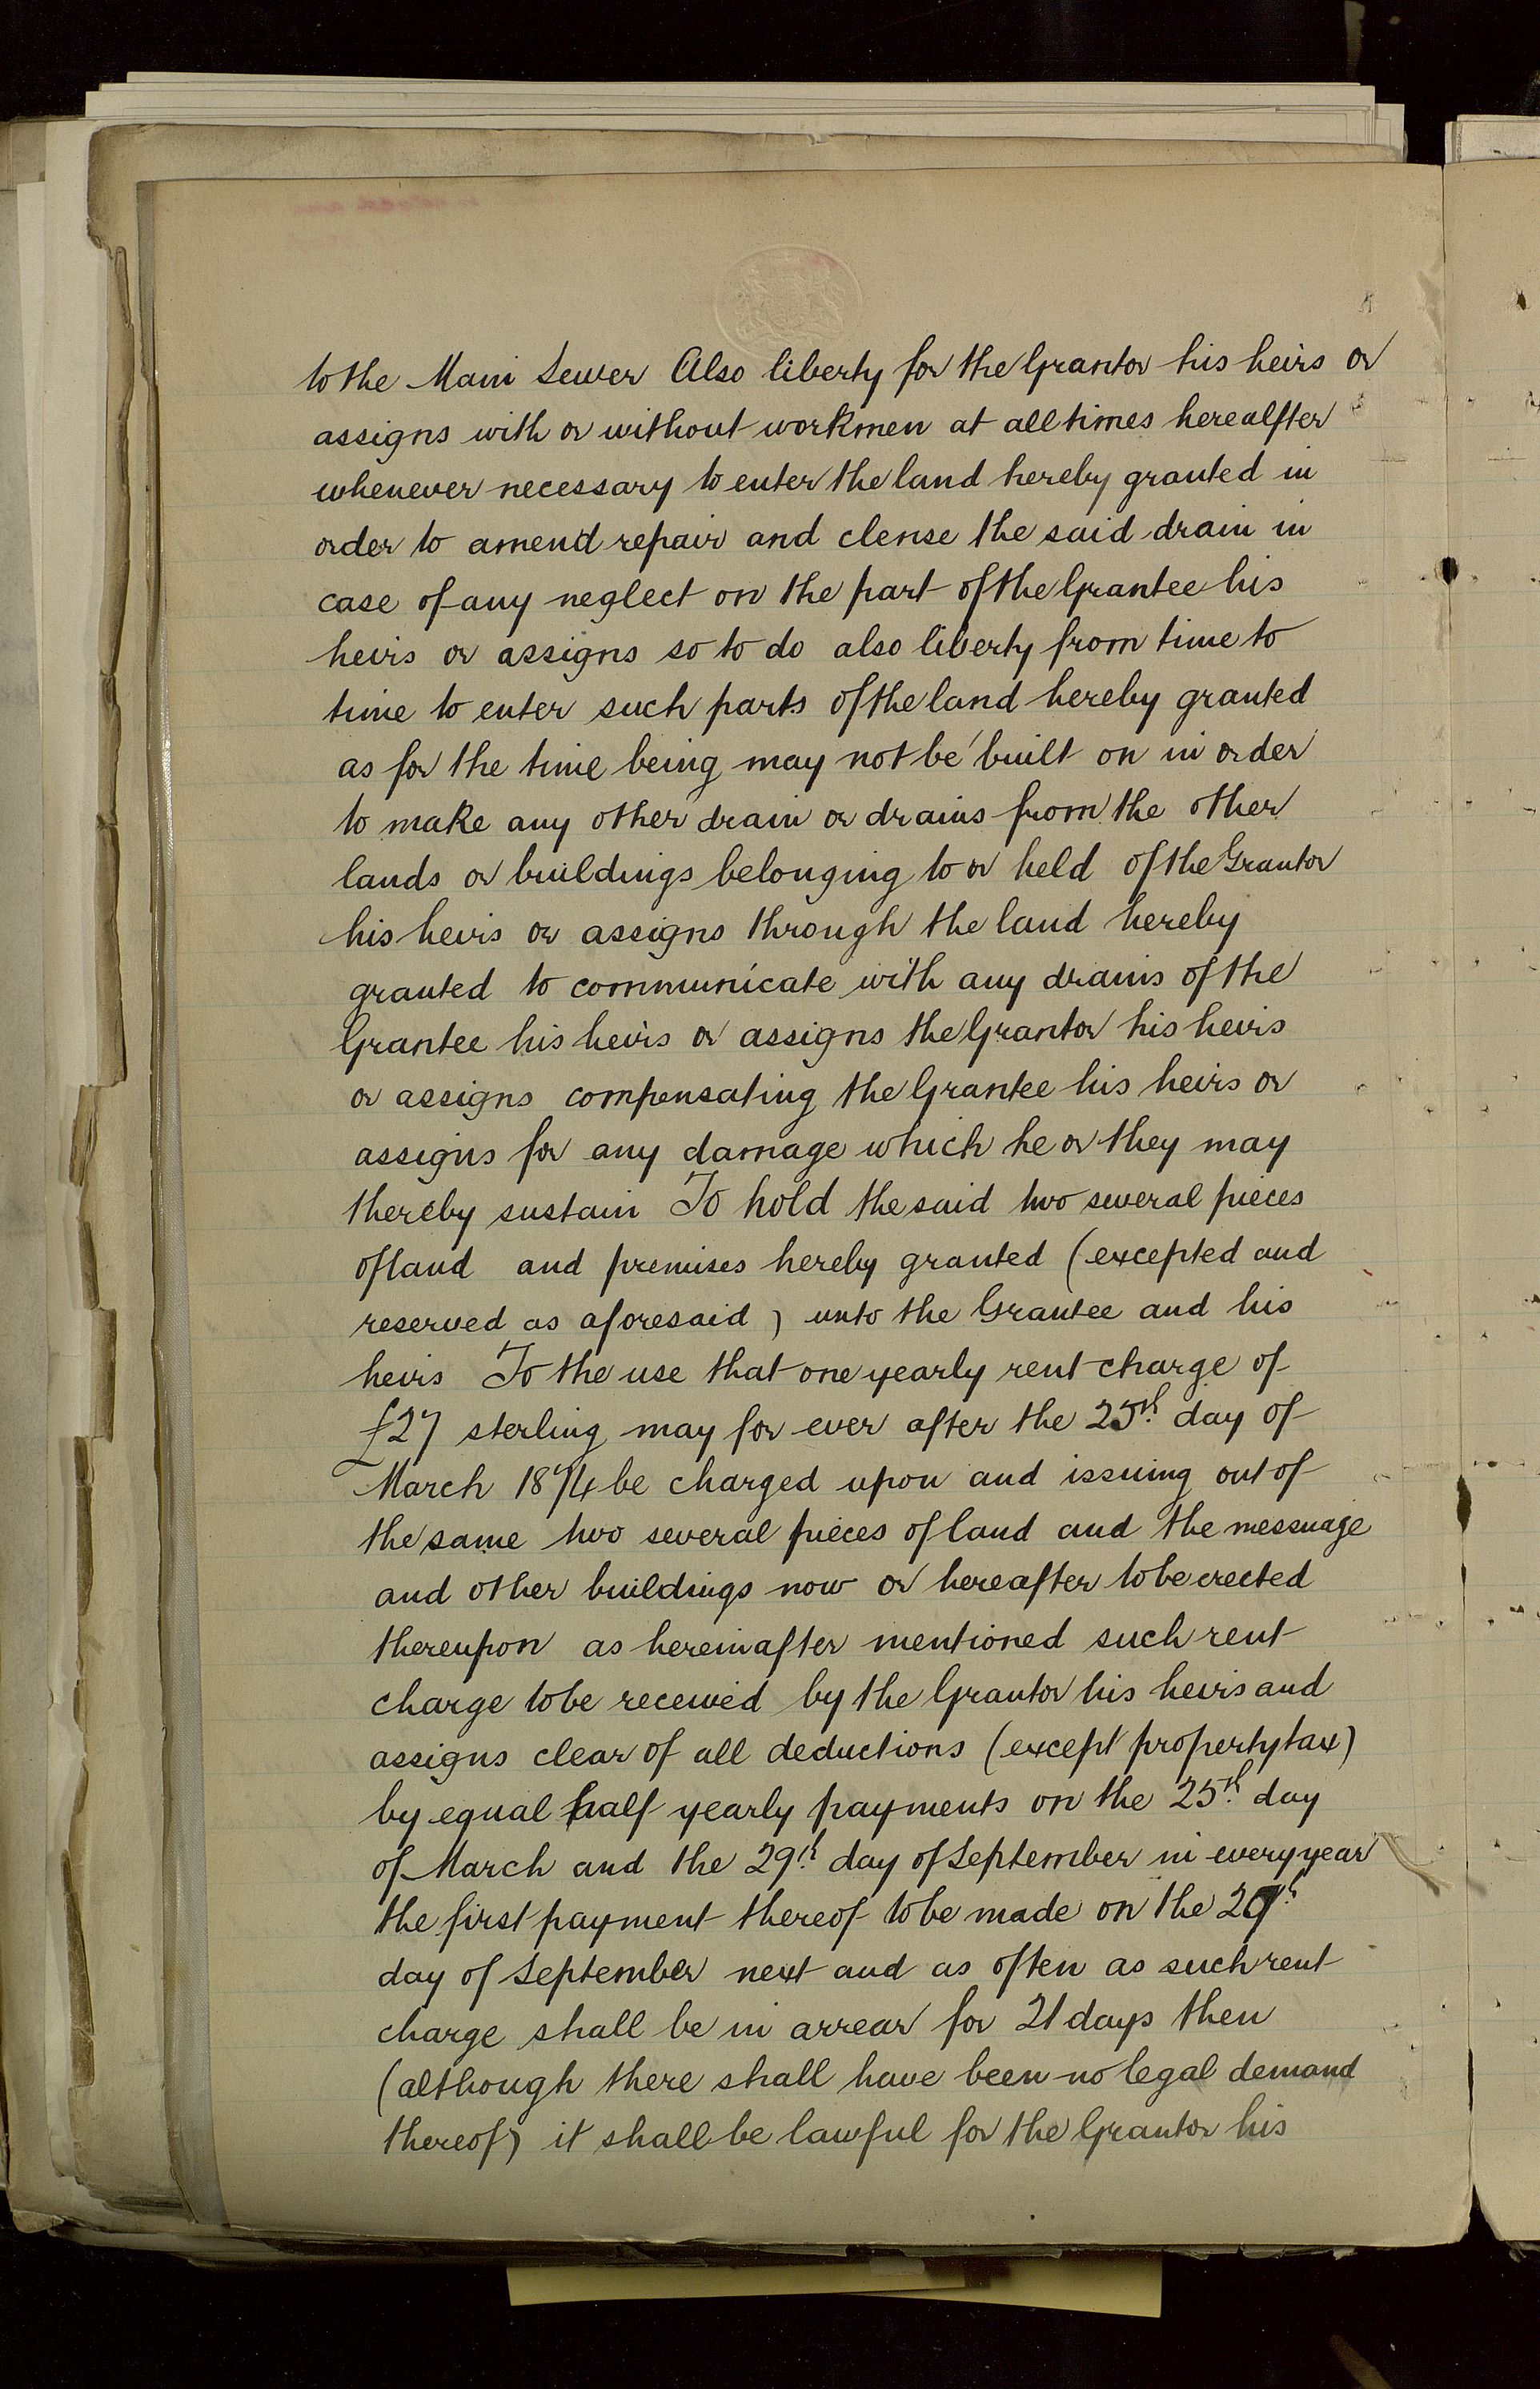 to the Main Sewer Also liberty for the Grantor his heirs or
assigns with or without workmen at all times herealfter
whenever necessary to enter the land hereby granted in
order to amend repair and clense the said drain in
case of any neglect on the part of the Grantee his
heirs or assigns so to do also liberty from time to
time to enter such parts of the land hereby granted
as for the time being may not be built on in order
to make any other drain or drains from the other
lands or buildings belonging to or held of the Grantor
his heirs or assigns through the land hereby
granted to communicate with any drains of the
Grantee his heirs or assigns the Grantor his heirs
or assigns compensating the Grantee his heirs or
assigns for any damage which he or they may
thereby sustain To hold the said two several pieces
of land and premises hereby granted (excepted and
reserved as aforesaid) unto the Grantee and his
heirs To the use that one yearly rent charge of
£27 sterling may for ever after the 25th. day of
March 1874 be charged upon and issuing out of
the same two several pieces of land and the messuage
and other buildings now or hereafter to be erected
thereupon as hereinafter mentioned such rent
charge to be received by the Grantor his heirs and
assigns clear of all deductions (except property tax)
by equal half yearly payments on the 25th. day
of March and the 29th. day of September in every year
the first payment thereof to be made on the 29th.
day of September next and as often as such rent
charge shall be in arrear for 21 days then
(although there shall have been no legal demand
thereof) it shall be lawful for the Grantor his